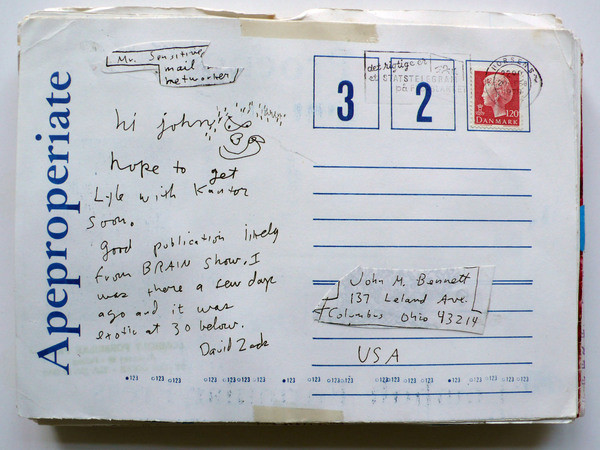 Mr. Sensitive
mail
networker
Apeproperiate
hi john
hope to get
Lyle with Kantor
soon.
Good publication likely
from BRAIN show. I
was there a few days
ago and it was
exotic at 30 below.
David Zack
det rigtige er
et STATSTELEGRAM
på
3
2
HORSENS
120
DANMARK
John M. Bennett
137 Leland Ave.
Columbus Ohio 43214
USA
123 123 123 123 123 123 123 123 123 123 123